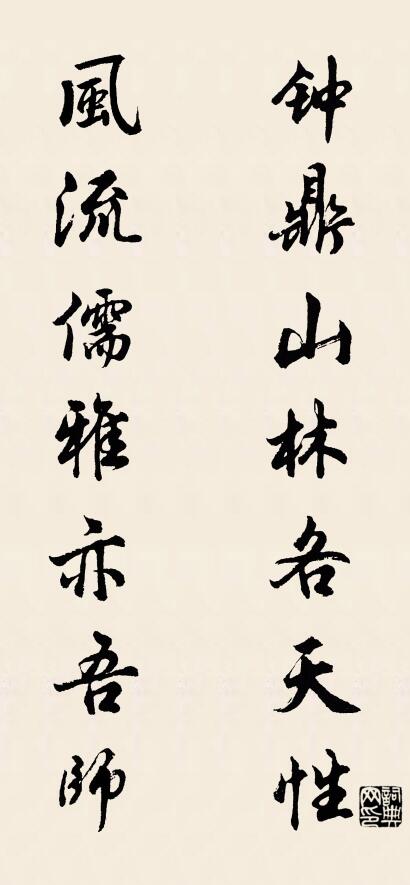 钟鼎山林各天性
風流儒雅亦吾師
詞典网印